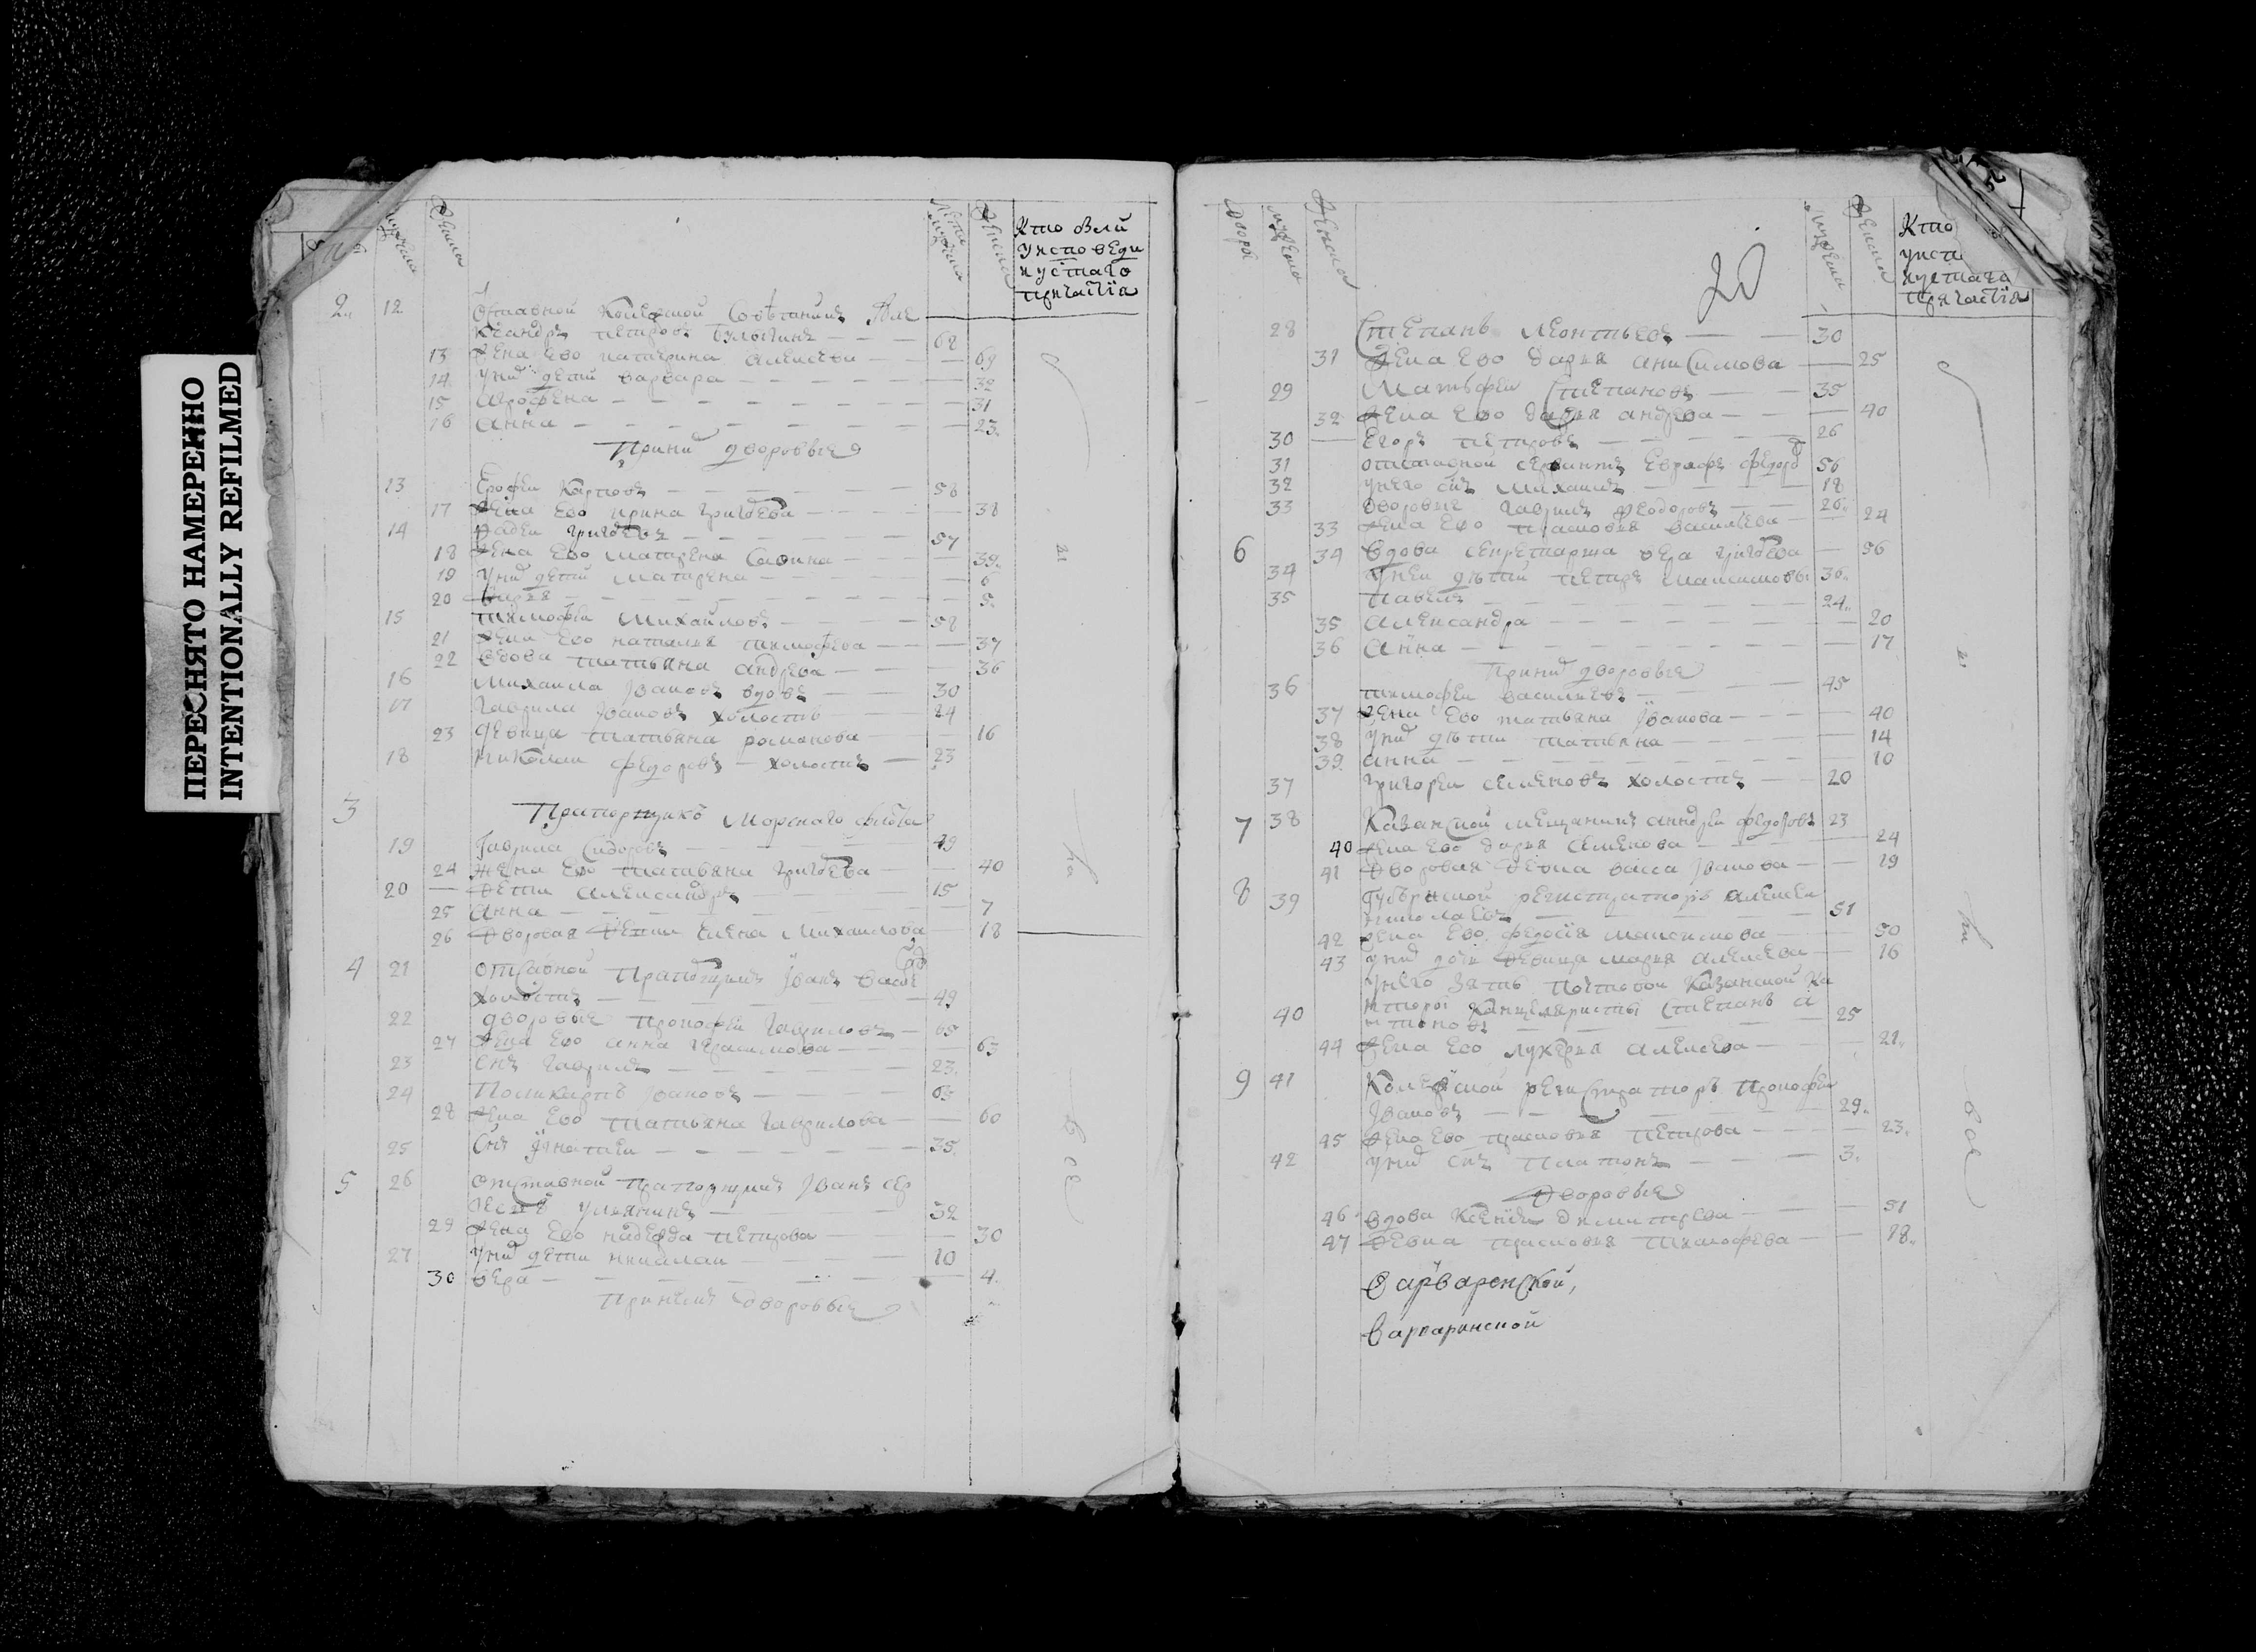 ПЕРЕСНЯТО НАМЕРЕННО
INTENTIONALLY REFILMED
мужеска
женска
лета мужеска
женска
Кто были
у исповеди
и у стаго
причастїя
2 12 Отставной Колежской Советникъ Але
ксандръ Петровъ 62
13 Жена Ево катерина алексеева 69
14 У них дети варвара 32
15 аграфена 31
16 анна 23
При них дворовыя
13 Ерофеи Карповъ 58
17 Жена Ево ирина григорева 38
14 Фадеи григоревъ 57
18 Жена Ево матрена Савина 39
19 У них дети матрена 6
20 Дарья 5
15 тимофеи Михайловъ 58
21 Жена Ево наталья тимофеева 37
22 вдова татьяна андрева 36
16 Михаила Ивановъ вдовъ 30
17 Гаврила Ивановъ холостъ 24
23 девица татьяна романова 16
18 Николаи федоровъ холостъ 23
3 Прапорщикъ Морскаго флота
19 Гаврила Сидоровъ 49
24 Жена Ево татьяна григорева 40
20 Дети александръ 15
25 Анна 7
26 Дворовая Девки елена Михаилова 18
4 21 отставной Прапорщикъ Иванъ васи
холостъ 49
22 дворовые прокофеи Гавриловъ 65
27 Жена Ево анна герасимова 63
23 Снъ гаврилъ 23
24 Поликарпъ Ивановъ 65
28 Жена Ево татьяна гаврилова 60
25 Снъ Игнатеи 35
5 26 отставной прапорщикъ Иванъ сер
геевъ 32
29 Жена Ево надежда петрова 30
27 У них дети николаи 10
30 вера 4
При немъ дворовыя
20
дворы
мужеска
женска
мужеска
женска
Кто
у испо
и у стаго
причастїя
28 Степанъ Леонтьевъ 30
31 Жена Ево дарья анисимова 25
29 Матвфеи Степановъ 35
32 Жена Ево дарья андрева 40
30 Егоръ петровъ 26
31 отставной сержантъ Евграфъ федоро 56
32 у него снъ михаилъ 18
33 дворовые Гаврилъ феодоровъ 26
33 Жена Ево прасковья васильева 24
6 34 Вдова секретарша вера григорева 56
34 У неи дети петръ максимовъ 36
35 павелъ 24
35 александра 20
36 Анна 17
При них дворовыя
36 тимофеи васильевъ 45
37 Жена Ево татьяна Иванова 40
38 У них дети татьяна 14
39 анна 10
37 григореи семеновъ холостъ 20
7 38 Казанской мещанинъ андреи федоровъ 23
40 Жена Ево дарья Семенова 24
41 Дворовая девка васса Иванова 19
8 39 Губернской регистраторъ алексеи
николаевъ 51
42 Жена Ево федосїя максимова 50
43 У них дочь девица марья алексева 16
У него зять почтовой Казанской ка
40 нторы канцеляристъ степанъ а
нтоновъ 25
44 Жена Ево лукерья алексева 21
9 41 Колежской регистраторъ прокофеи
Ивановъ 29
45 Жена Ево прасковья петрова 23
42 У них снъ Платонъ 3
Дворовыя
46 вдова ксенїя димитрева 51
47 девка прасковья тимофева 18
Варваренской,
Варваринской